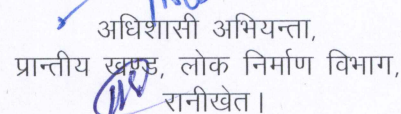 अधिशासी अभियन्ता,
प्रान्तीय खण्ड, लोक निर्माण विभाग,
रानीखेत।